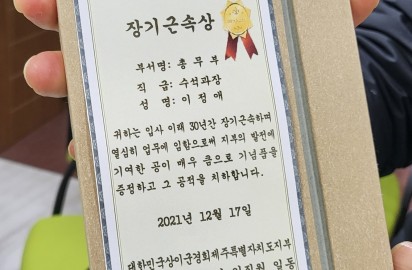 장기근속상
부서명: 총무부
직 급: 수석과장
성 명: 이정애
귀하는 입사 이래 30년간 장기근속하며
열심히 업무에 임함으로써 지부의 발전에
기여한 공이 매우 큼으로 기념품을
증정하고 그 공적을 치하합니다.
2021년 12월 17일
대한민국상이군경회제주특별자치도지부
임직원 일동